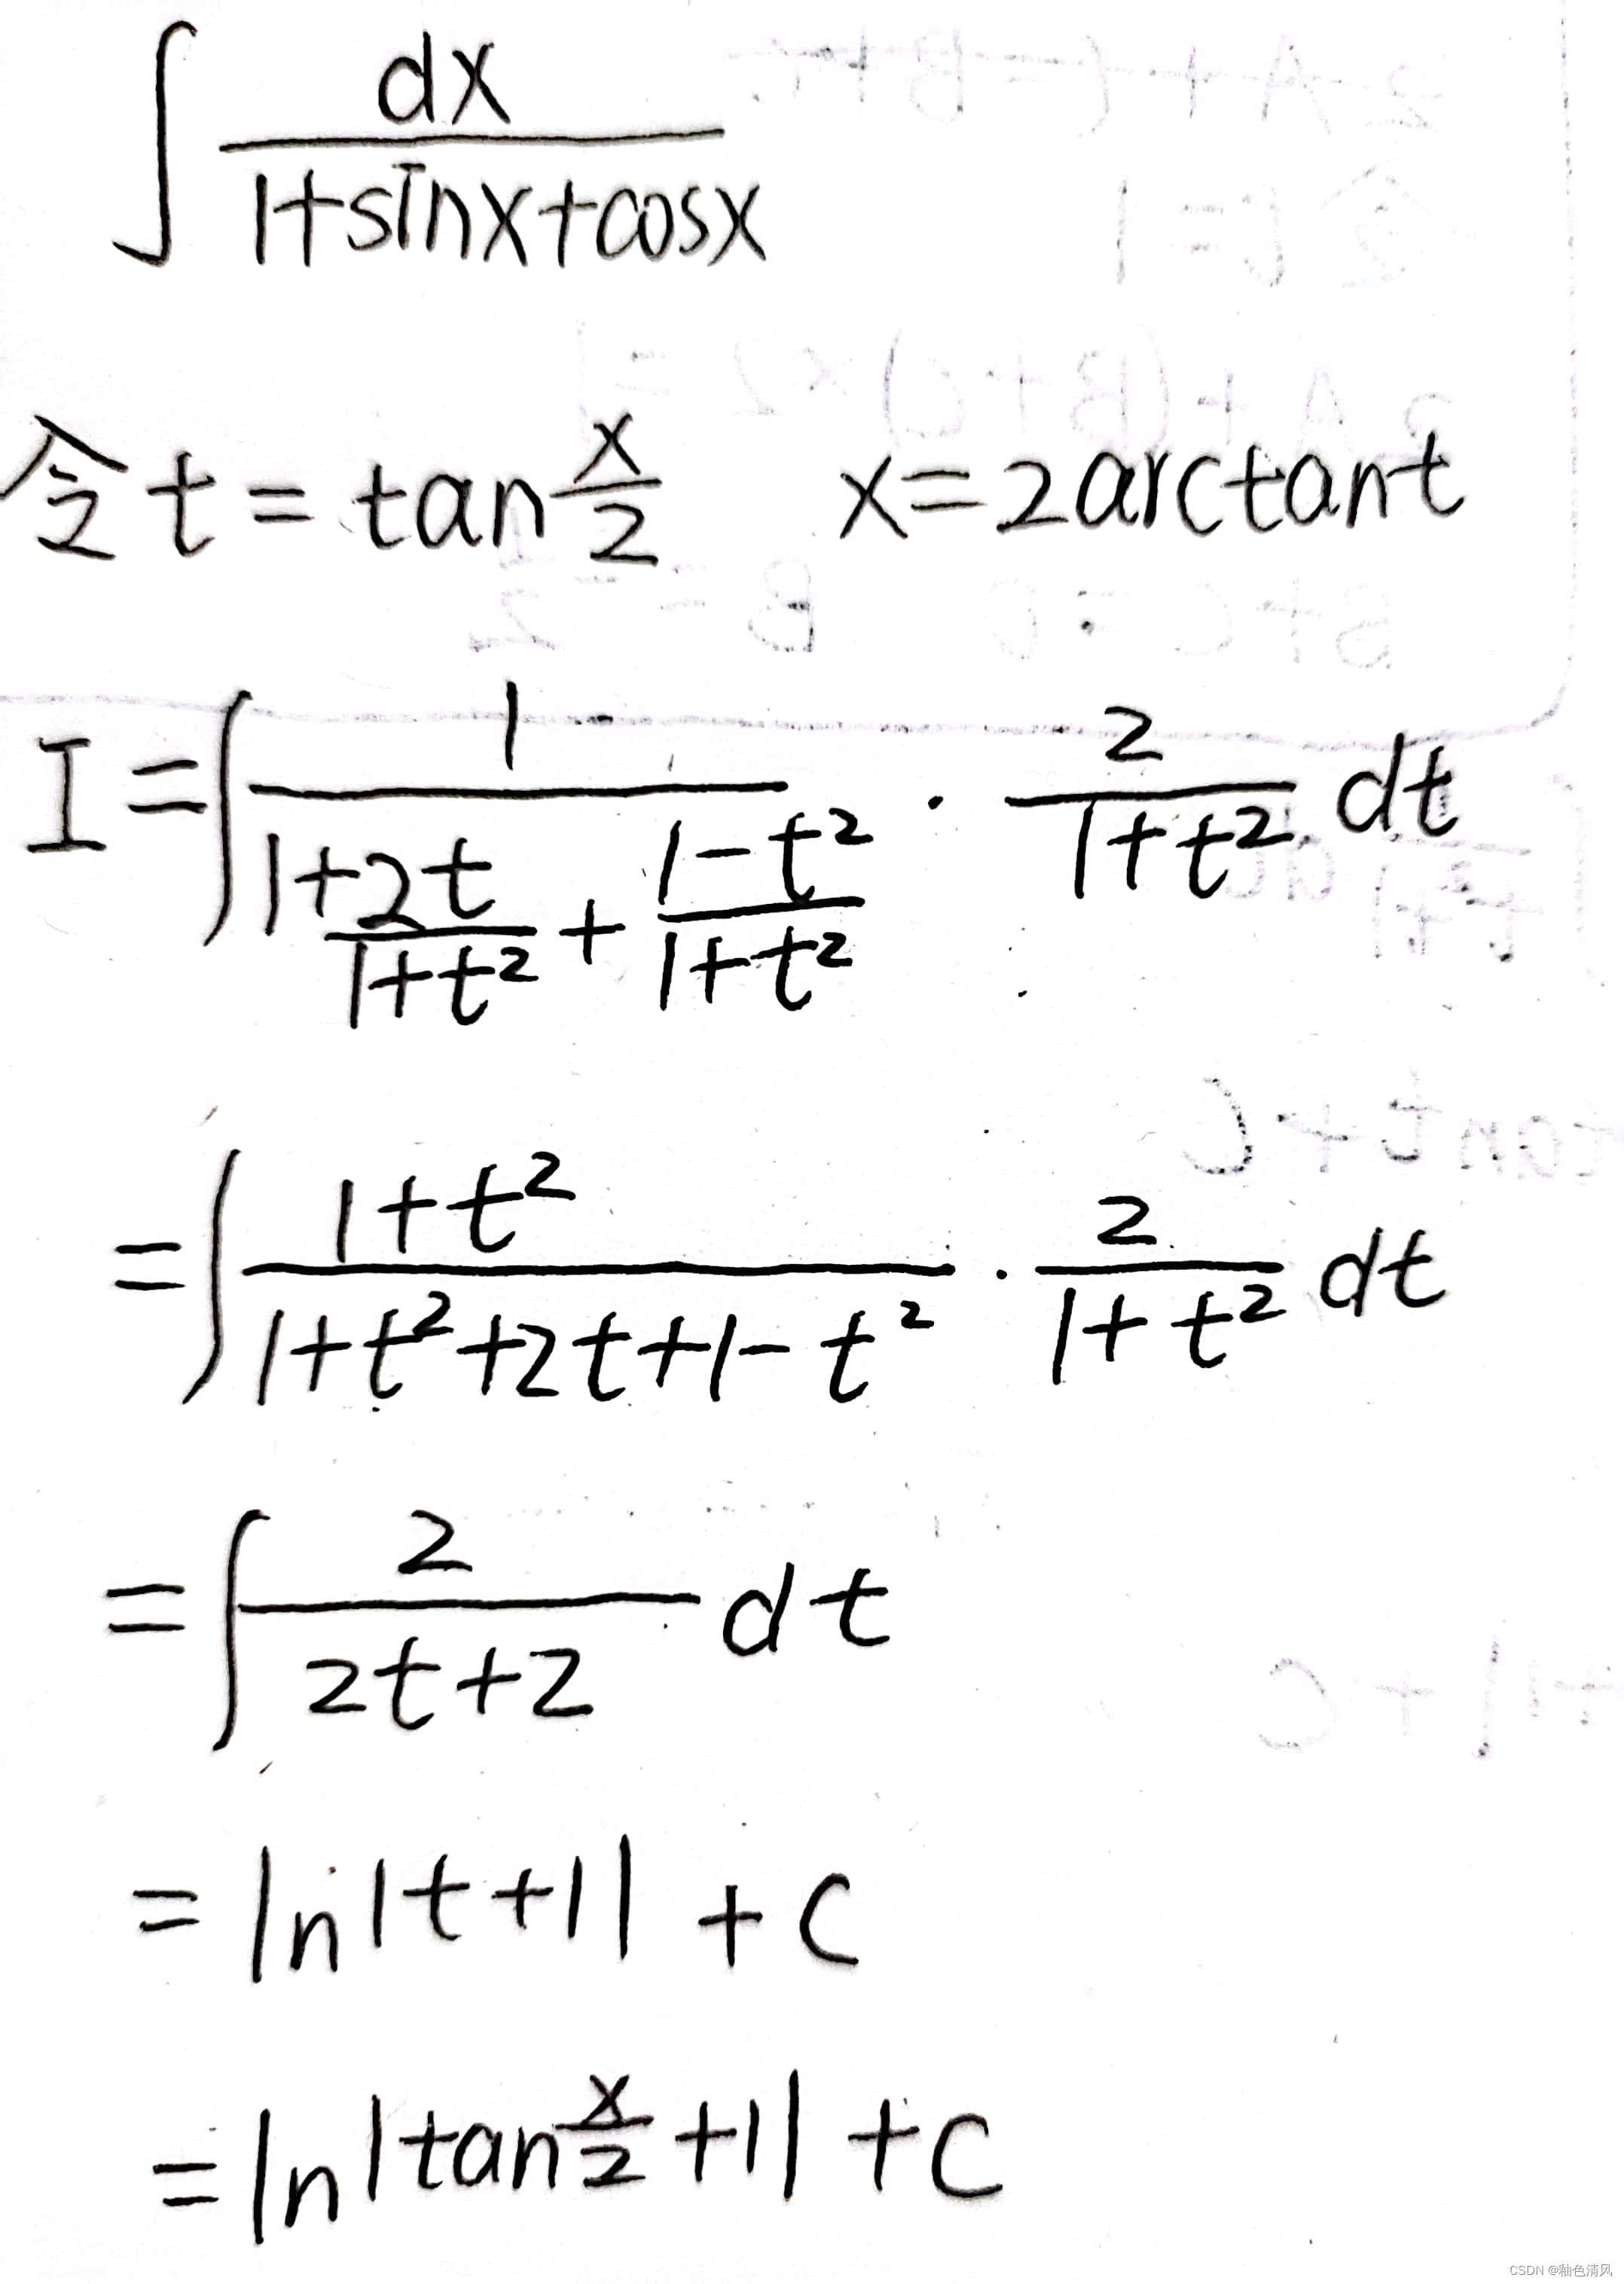 ∫ dx / (1+sinx+cosx)
令 t = tan x/2   x = 2arctant
I = ∫ 1 / (1 + 2t/(1+t²) + (1-t²)/(1+t²)) · 2/(1+t²) dt
= ∫ (1+t²) / (1+t²+2t+1-t²) · 2/(1+t²) dt
= ∫ 2/(2t+2) dt
= ln|t+1| + C
= ln|tan x/2 +1| + C
CSDN @釉色清风